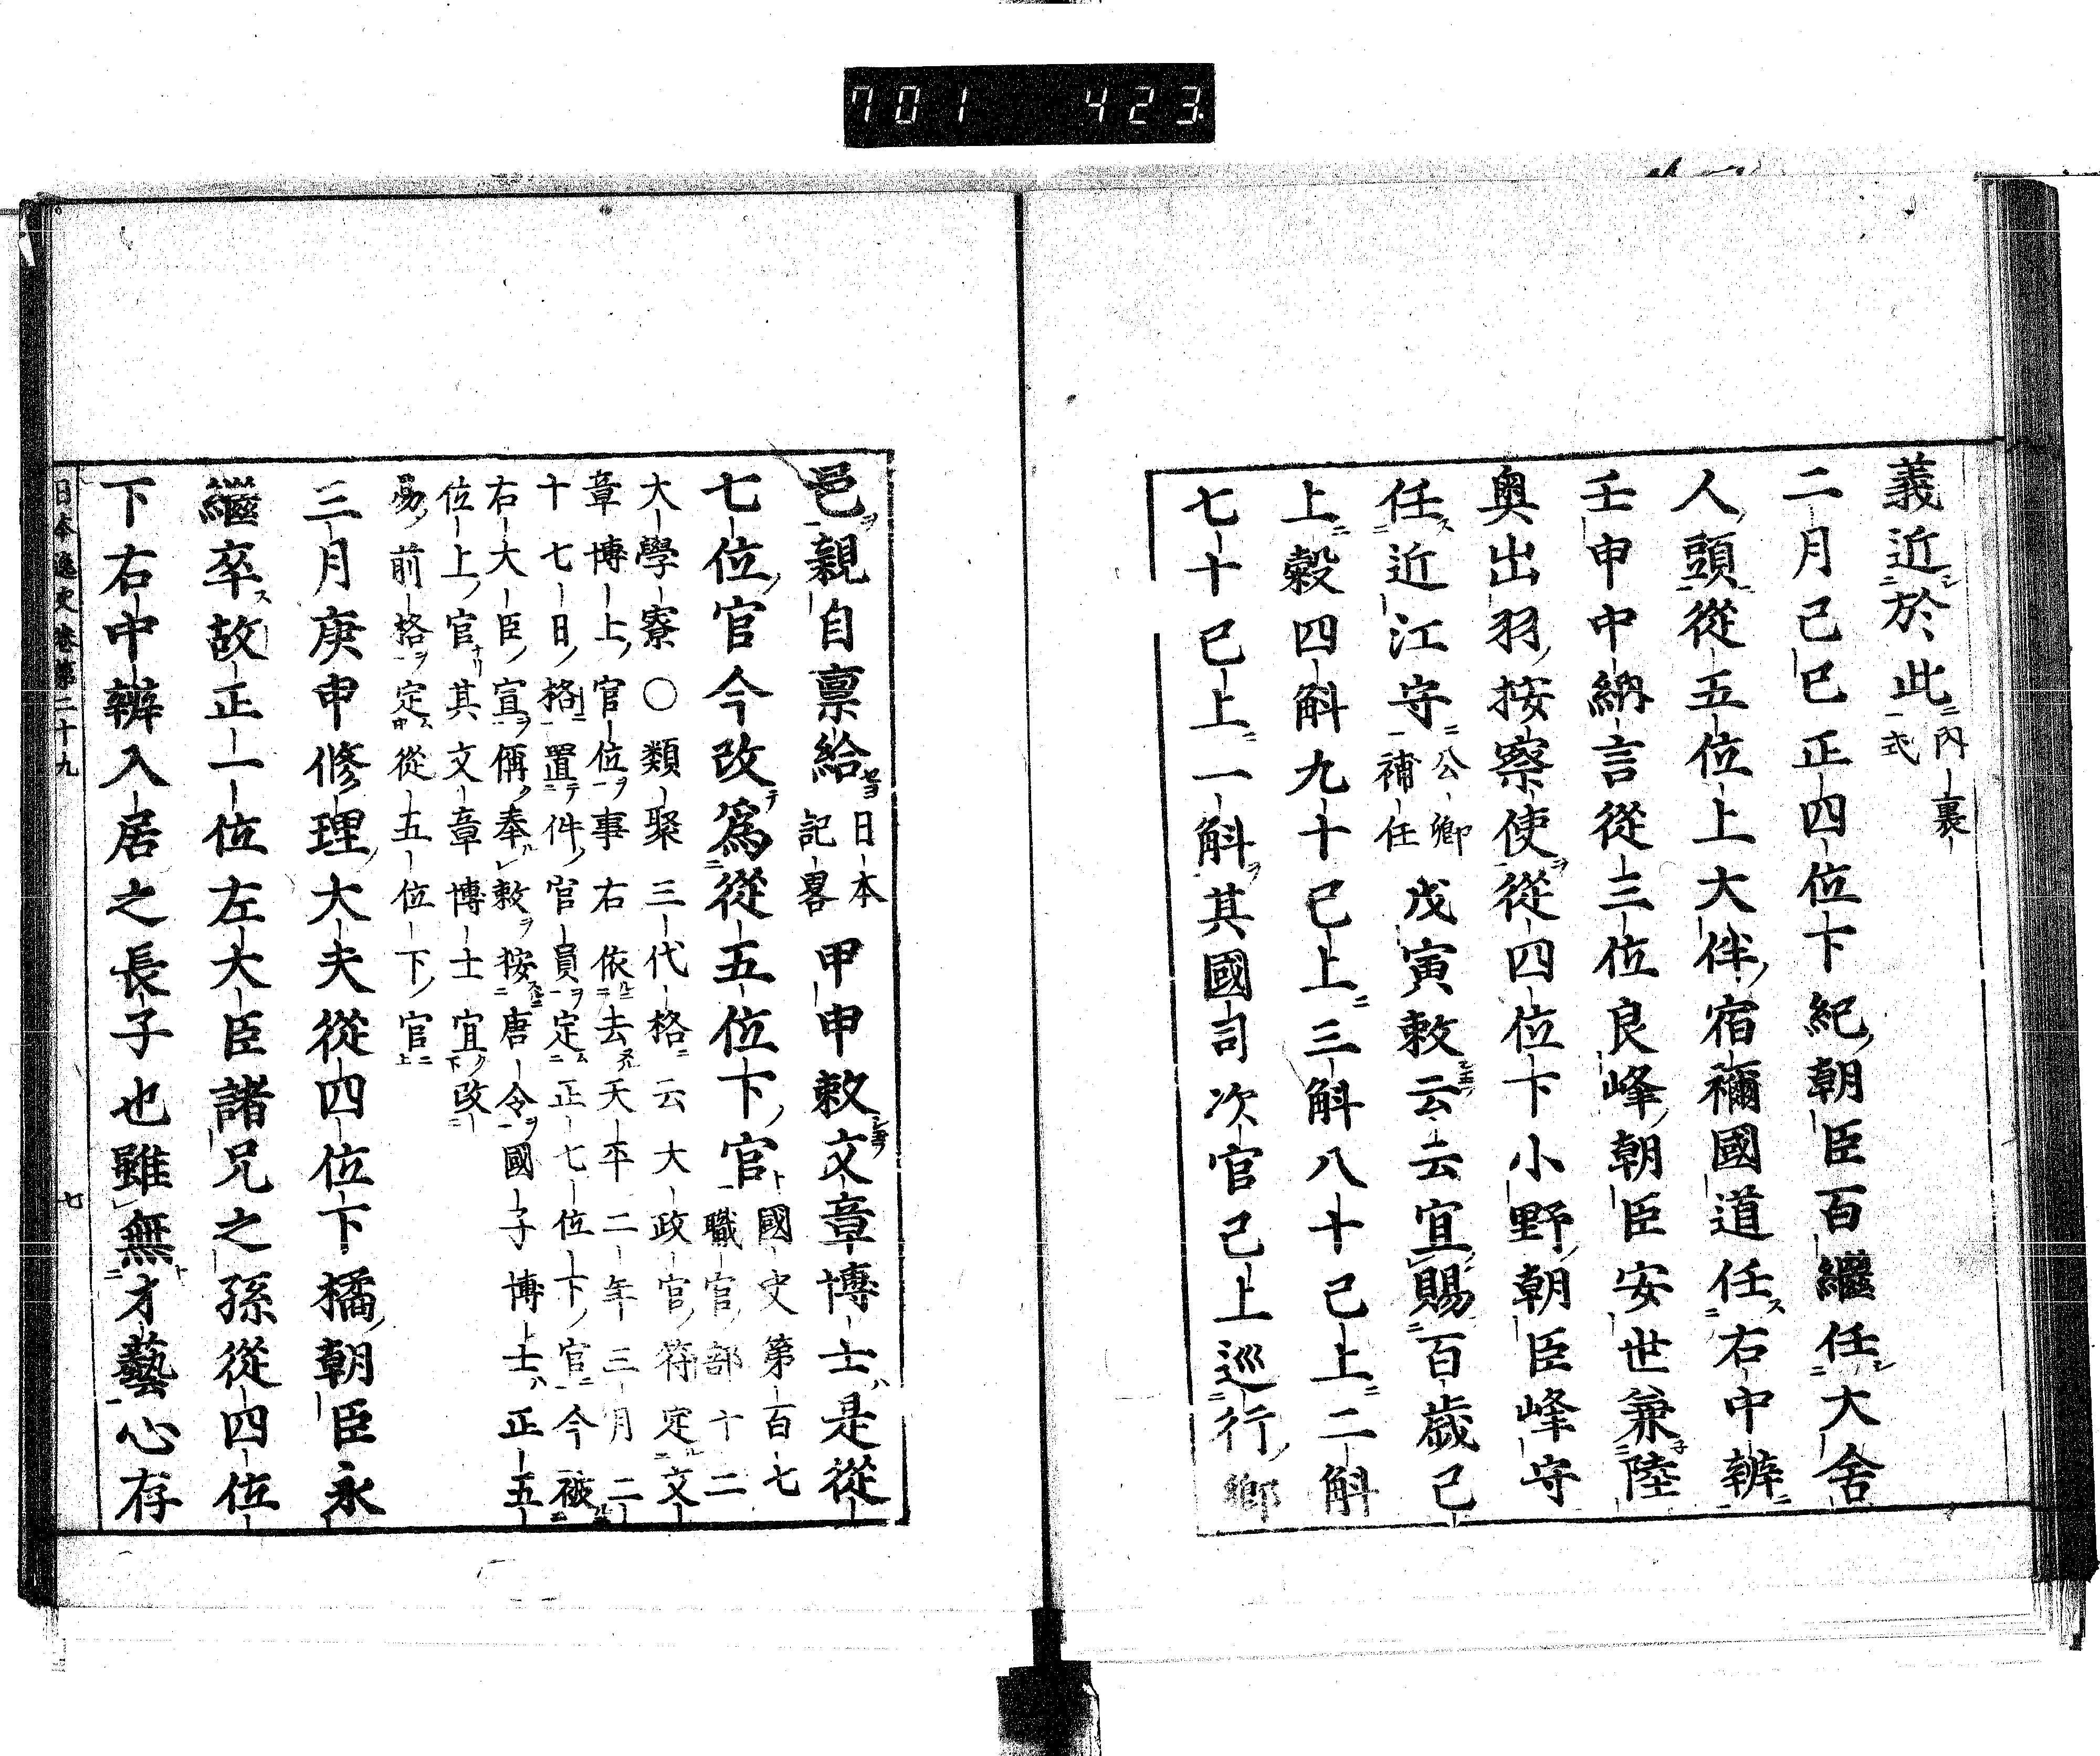 701 423
義近於此内裏
式
二月己巳正四位下紀朝臣百繼任大舍
人頭從五位上大伴宿禰國道任右中辨
壬申中納言從三位良峰朝臣安世兼陸
奥出羽按察使從四位下小野朝臣峰守
任近江守公卿
補任戊寅敕云云宜賜百歲已
上穀四斛九十已上三斛八十已上二斛
七十已上一斛其國司次官已上巡行鄉
邑親自禀給日本
記畧甲申敕文章博士是從
七位官今改爲從五位下官國史第百七
職官部十二
大學寮○類聚三代格云大政官符定文
章博士官位事右依去天平二年三月二
十七日格置件官員定正七位下官今被
右大臣宣偁奉敕按唐令國子博士正五
位上官其文章博士宜改
易前格定從五位下官
三月庚申修理大夫從四位下橘朝臣永
繼卒故正一位左大臣諸兄之孫從四位
下右中辨入居之長子也雖無才藝心存
日本逸史卷第三十九 七